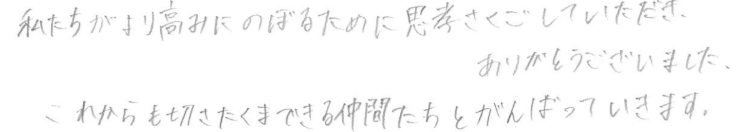 私たちがより高みにのぼるために思考さくごしていただき、
ありがとうございました、
これからも切さたくまできる仲間たちとがんばっていきます。